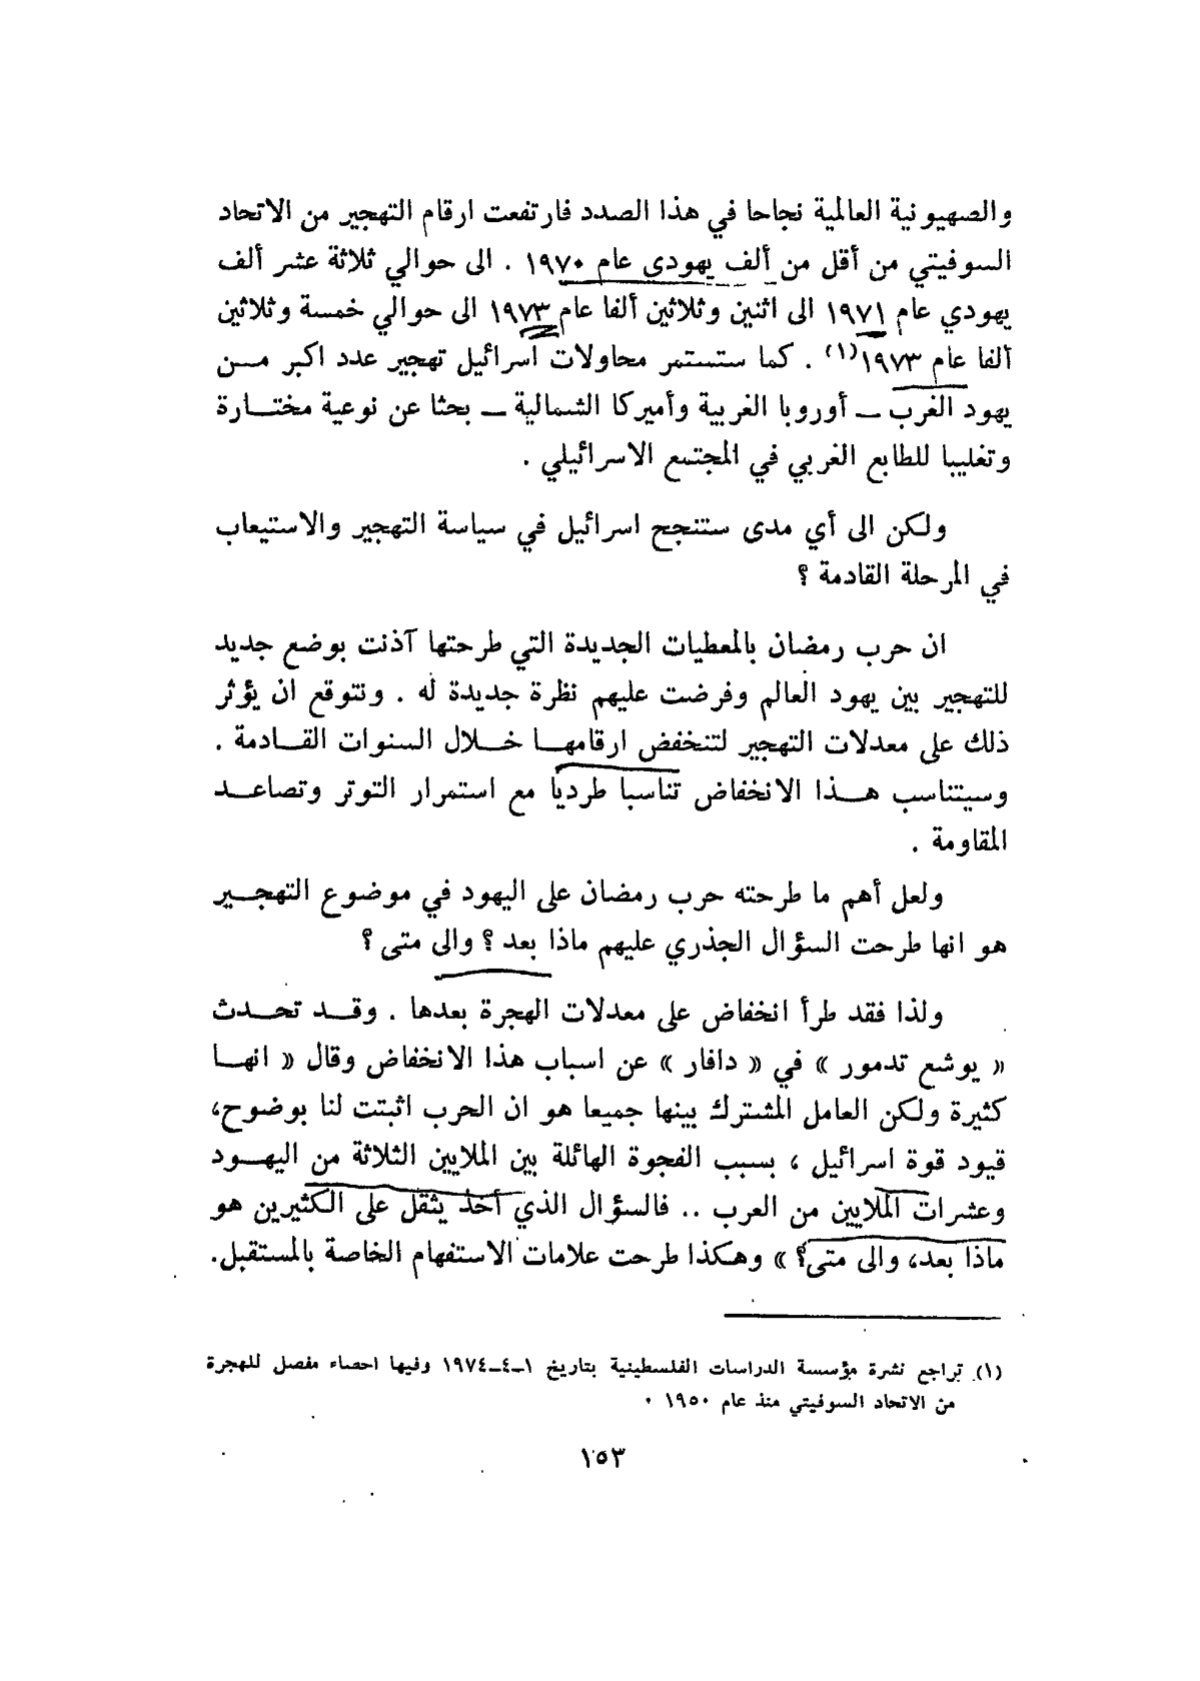 والصهيونية العالمية نجاحا في هذا الصدد فارتفعت ارقام التهجير من الاتحاد
السوفيتي من أقل من ألف يهودى عام ١٩٧٠ . الى حوالي ثلاثة عشر ألف
يهودي عام ١٩٧١ الى اثنين وثلاثين ألفا عام ١٩٧٣ الى حوالي خمسة وثلاثين
ألفا عام ١٩٧٣(١) . كما ستستمر محاولات اسرائيل تهجير عدد اكبر مــن
يهود الغرب ــ أوروبا الغربية وأميركا الشمالية ــ بحثا عن نوعية مختــارة
وتغليبا للطابع الغربي في المجتمع الاسرائيلي .
ولكن الى أي مدى ستنجح اسرائيل في سياسة التهجير والاستيعاب
في المرحلة القادمة ؟
ان حرب رمضان بالمعطيات الجديدة التي طرحتها آذنت بوضع جديد
للتهجير بين يهود العالم وفرضت عليهم نظرة جديدة له . ونتوقع ان يؤثر
ذلك على معدلات التهجير لتنخفض ارقامهــا خــلال السنوات القــادمة .
وسيتناسب هــذا الانخفاض تناسبا طرديا مع استمرار التوتر وتصاعــد
المقاومة .
ولعل أهم ما طرحته حرب رمضان على اليهود في موضوع التهجــير
هو انها طرحت السؤال الجذري عليهم ماذا بعد ؟ والى متى ؟
ولذا فقد طرأ انخفاض على معدلات الهجرة بعدها . وقــد تحــدث
« يوشع تدمور » في « دافار » عن اسباب هذا الانخفاض وقال « انهــا
كثيرة ولكن العامل المشترك بينها جميعا هو ان الحرب اثبتت لنا بوضوح،
قيود قوة اسرائيل ، بسبب الفجوة الهائلة بين الملايين الثلاثة من اليهــود
وعشرات الملايين من العرب .. فالسؤال الذي أخذ يثقل على الكثيرين هو
ماذا بعد، والى متى؟ » وهكذا طرحت علامات الاستفهام الخاصة بالمستقبل.
(١) تراجع نشرة مؤسسة الدراسات الفلسطينية بتاريخ ١ــ٤ــ١٩٧٤ وفيها احصاء مفصل للهجرة
من الاتحاد السوفيتي منذ عام ١٩٥٠ .
١٥٣